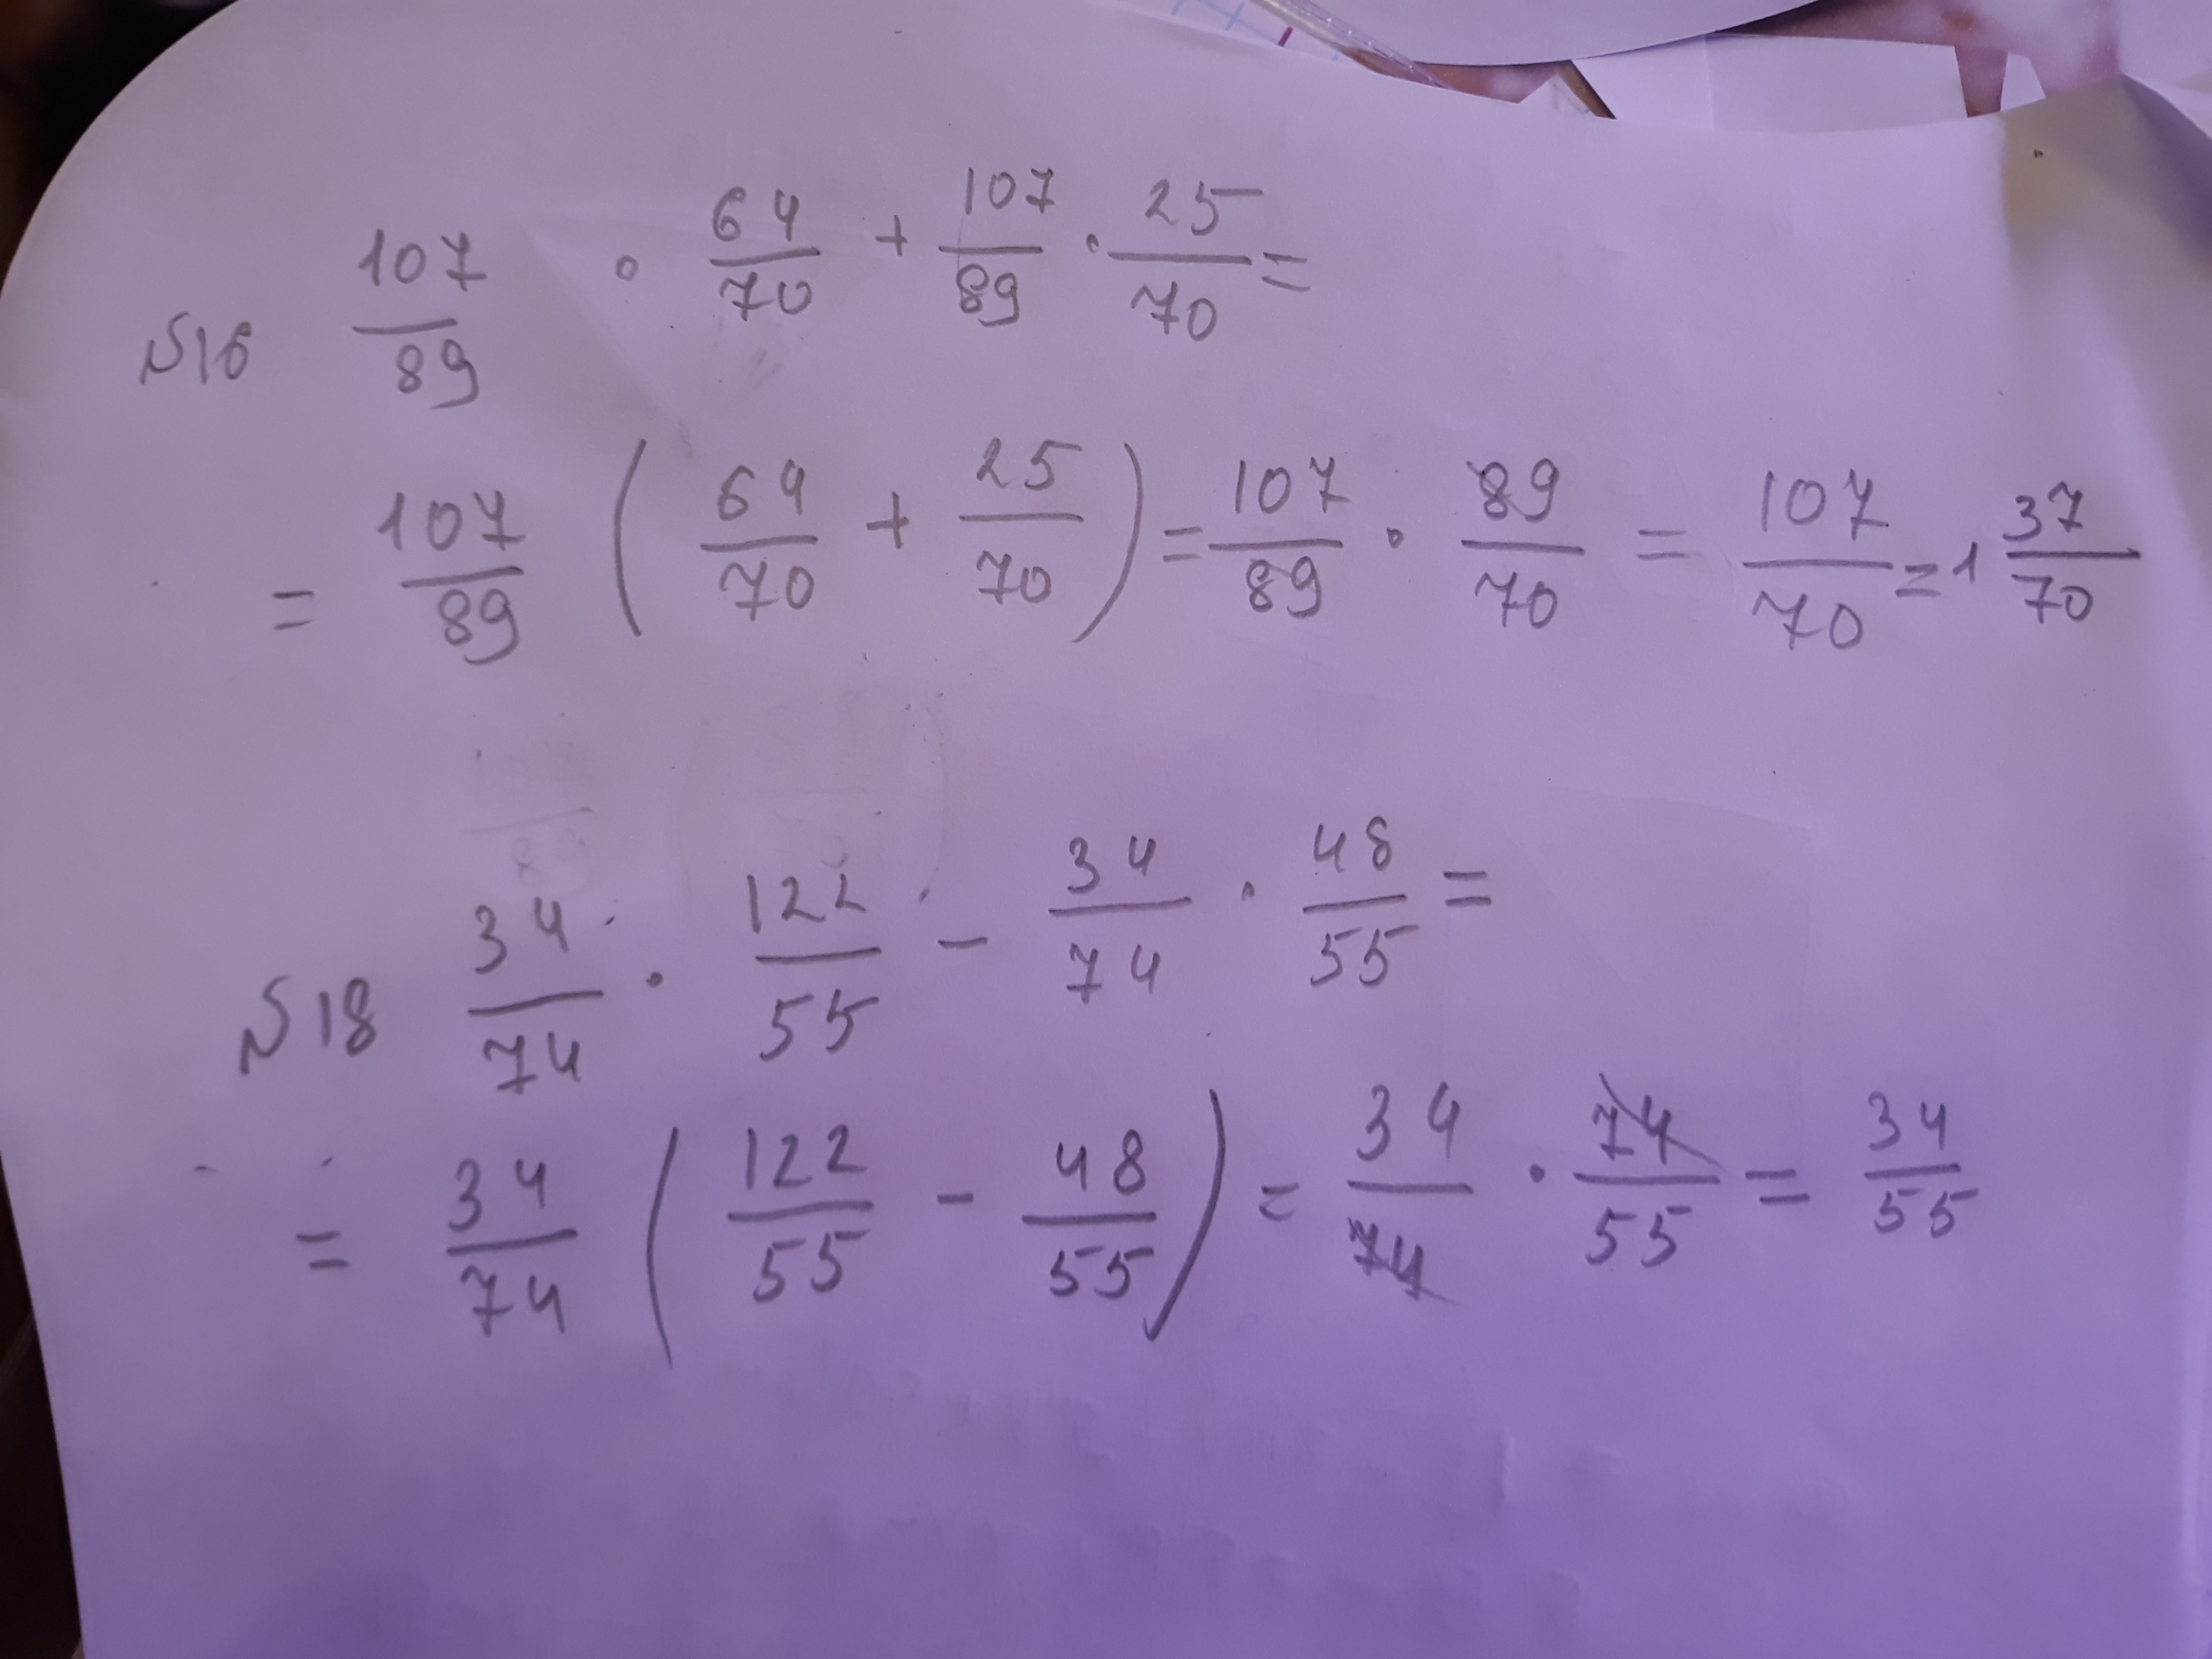 №16 107/89 · 64/70 + 107/89 · 25/70 =
= 107/89 ( 64/70 + 25/70 ) = 107/89 · 89/70 = 107/70 = 1 37/70
№18 34/74 · 122/55 - 34/74 · 48/55 =
= 34/74 ( 122/55 - 48/55 ) = 34/74 · 74/55 = 34/55